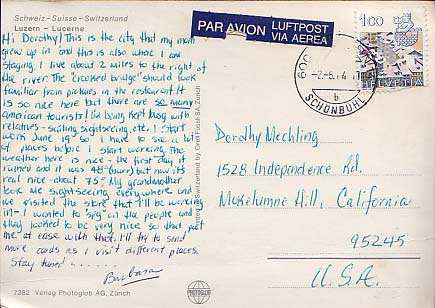 Schweiz – Suisse – Switzerland
Luzern – Lucerne
Hi Dorothy! This is the city that my mom
grew up in and this is also where I am
staying. I live about 2 miles to the right of
the river. The "crooked bridge" should look
familiar from pictures in the restaurant. It
is so nice here but there are so many
american tourists! I'm being kept busy with
relatives - sailing, sightseeing, etc. I start
work June 19th so I have to see a lot
of places before I start working. The
weather here is nice - the first day it
rained and it was 48° (burr) but now it's
real nice - about 75°. My grandmother
took me sightseeing everywhere and
we visited the store that I'll be working
in - I wanted to "spy" on the people and
they looked to be very nice so that put
me at ease with that. I'll try to send
more cards as I visit different places.
Stay tuned
Barbara
7382 Verlag Photoglob AG, Zürich
Printed in Switzerland by Orell Füssli SA, Zürich
PHOTOGLOB
PAR AVION
LUFTPOST
VIA AEREA
600
-2.-6.
b
SCHÖNBÜHL
100
HELVETIA
Dorothy Mechling
1528 Independence Rd.
Mokelumne Hill, California
95245
U.S.A.